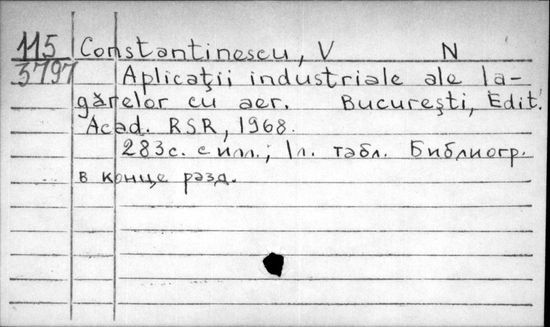 115 Constantinescu, V N
3797 Aplicaţii industriale ale la-
gărelor cu aer. Bucureşti, Edit.
Acad. RSR, 1968.
283с. с илл.; 1л. табл. Библиогр.
в конце разд.